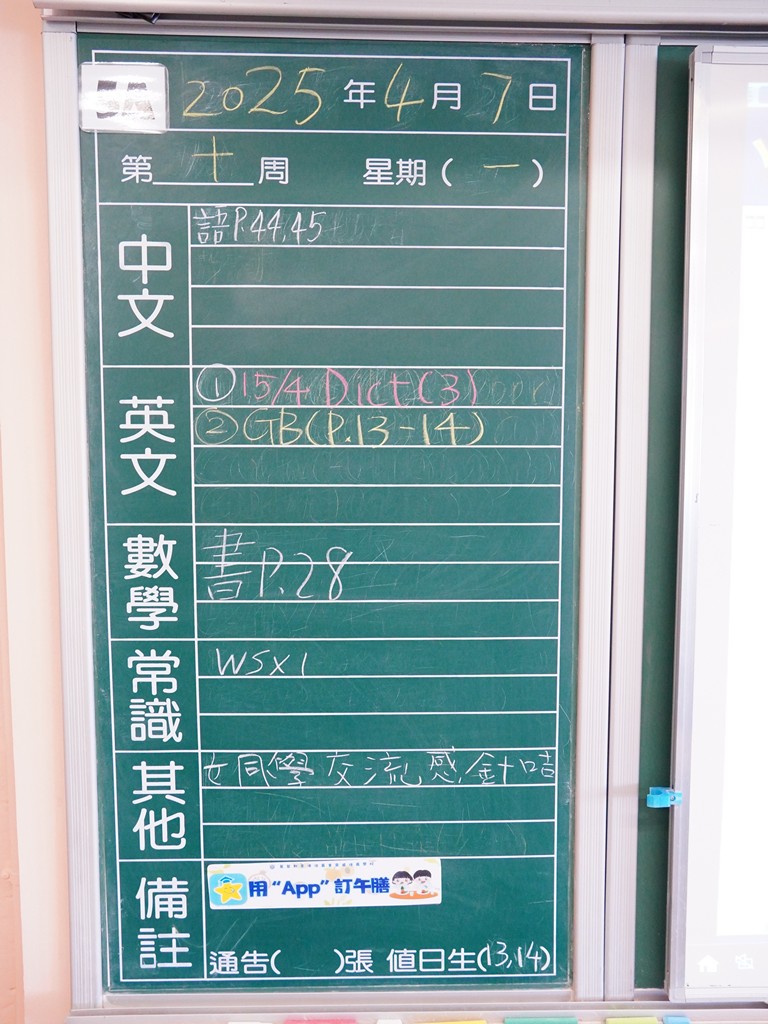 2025年4月7日
第十周 星期(一)
中文
語P.44,45
英文
①15/4 Dict(3)
②GB(P.13-14)
數學
書P.28
常識
WSx1
其他
女同學交流感針咭
備註
用“App”訂午膳
通告( )張 值日生(13,14)